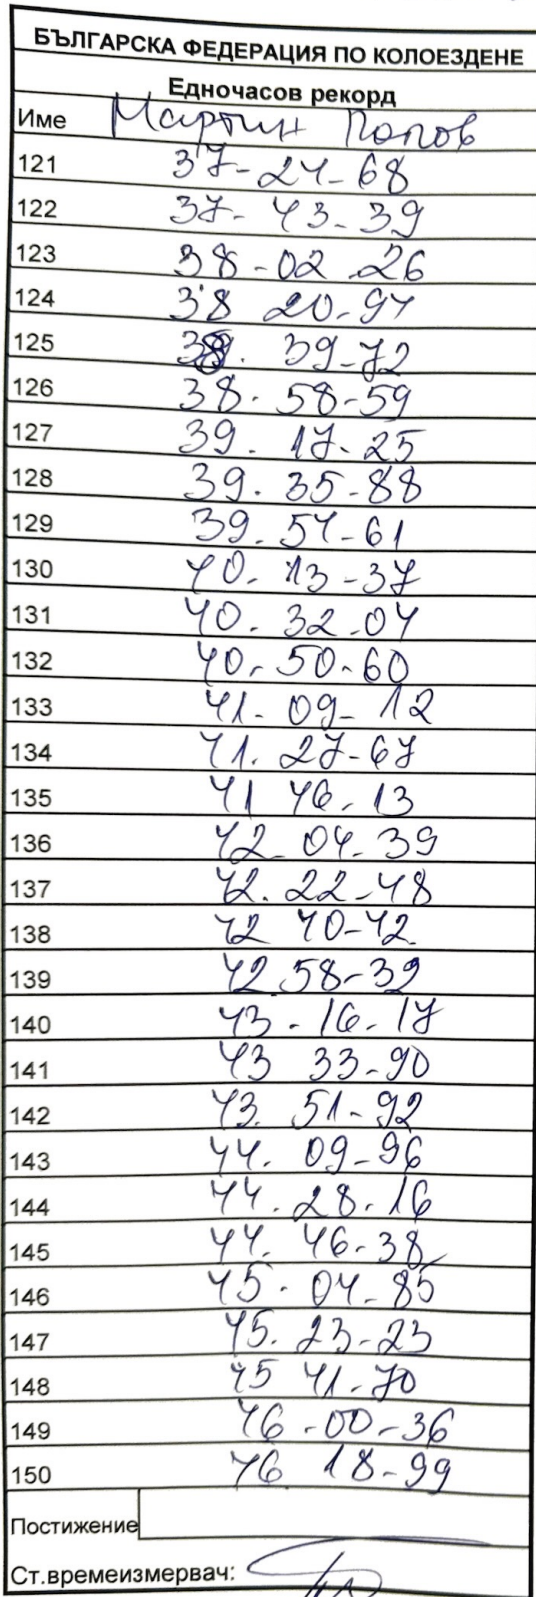 БЪЛГАРСКА ФЕДЕРАЦИЯ ПО КОЛОЕЗДЕНЕ
Едночасов рекорд
Име Мартин Попов
121 37-24-68
122 37-43-39
123 38-02-26
124 38 20-94
125 38. 39-72
126 38. 58-59
127 39. 17-25
128 39. 35-88
129 39. 54-61
130 40. 13-37
131 40. 32-04
132 40. 50-60
133 41- 09-12
134 41. 27-67
135 41 46-13
136 42- 04-39
137 42. 22-48
138 42 40-42
139 42 58-39
140 43-16-17
141 43 33-90
142 43. 51-92
143 44. 09-96
144 44. 28-16
145 44. 46-38
146 45. 04-85
147 45. 23-23
148 45 41-70
149 46-00-36
150 46 18-99
Постижение
Ст.времеизмервач: